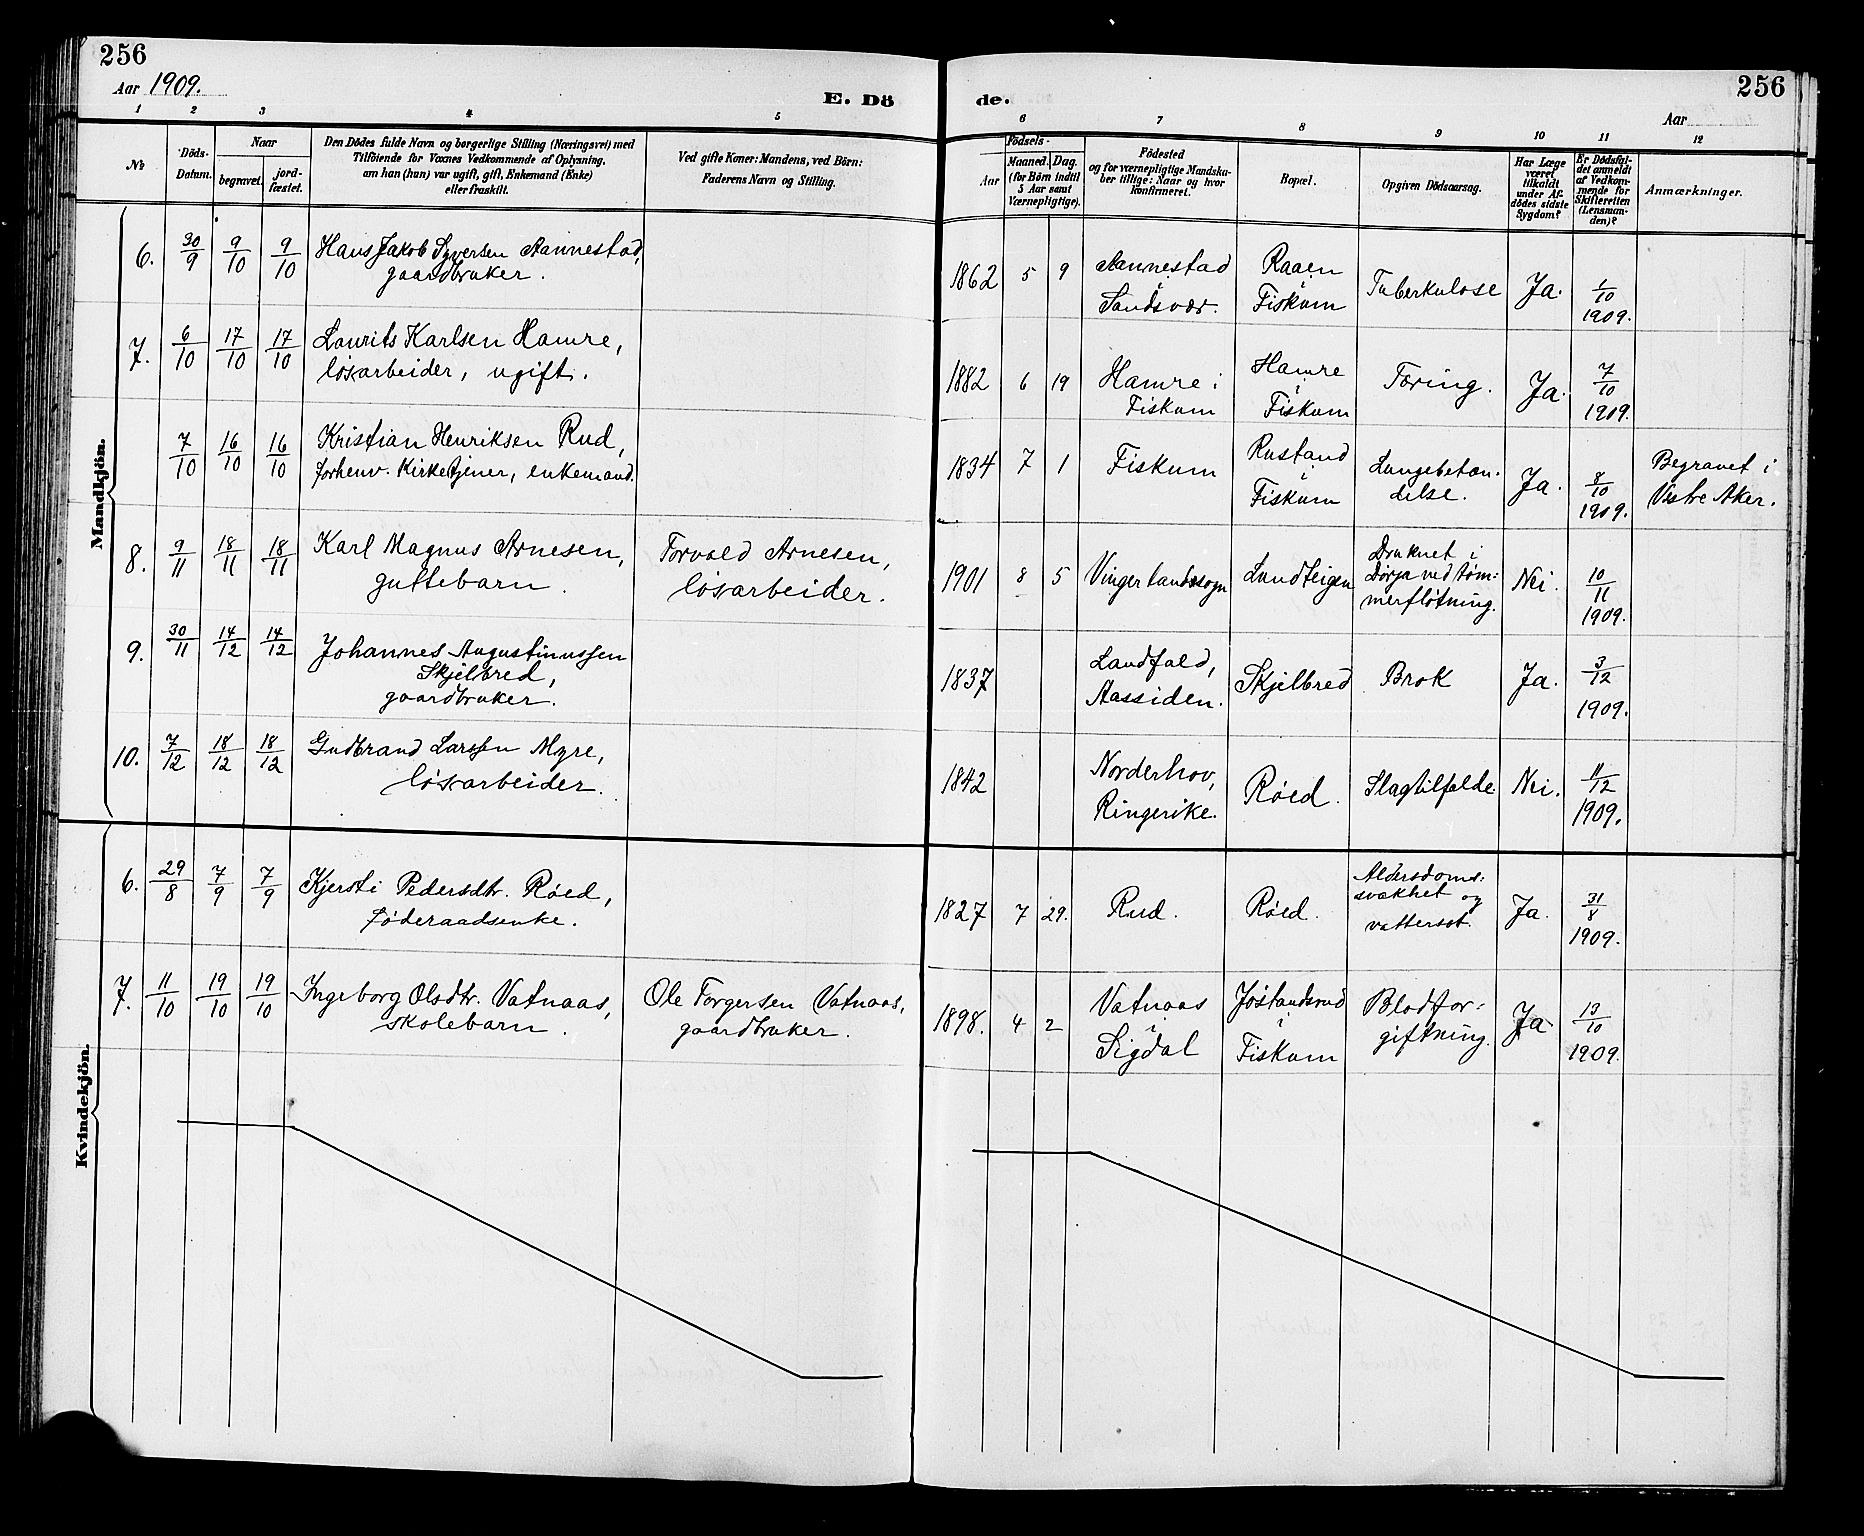 256
256
Aar 1909.
E. Dö
de.
Aar
1 2 3 4 5 6 7 8 9 10 11 12
№
Döds-
Datum.
Naar
begravet.
jord-
fæstet.
Den Dödes fulde Navn og borgerlige Stilling (Næringsvei) med
Tilföiende for Voxnes Vedkommende af Oplysning,
om han (hun) var ugift, gift, Enkemand (Enke)
eller fraskilt.
Ved gifte Koner: Mandens, ved Börn:
Faderens Navn og Stilling.
Födsels-
Aar
Maaned. Dag.
(for Börn indtil
5 Aar samt
Værnepligtige).
Födested
og for værnepligtige Mandska-
ber tillige: Naar og hvor
konfirmeret.
Bopæl.
Opgiven Dödsaarsag.
Har Læge
været
tilkaldt
under Af-
dödes sidste
Sygdom?
Er Dödsfal-
det anmeldt
af Vedkom-
mende for
Skifteretten
(Lensman-
den)?
Anmærkninger.
Mandkjön.
6. 30/9 9/10 9/10 Hans Jakob Syversen Aannestad,
gaardbruker.
1862 5 9 Aannestad
i
Sandsvær.
Raaen
i
Fiskum
Tuberkulose Ja. 1/10
1909.
7. 6/10 17/10 17/10 Laurits Karlsen Hamre,
løsarbeider, ugift.
1882 6 19 Hamre i
Fiskum
Hamre
i
Fiskum
Tæring. Ja. 7/10
1909.
7/10 16/10 16/10 Kristian Henriksen Rud,
forhenv. Kirketjener, enkemand.
1834 7 1 Fiskum
Rustand
i
Fiskum
Lungebetæn-
delse.
Ja. 8/10
1909.
Begravet i
Vestre Aker.
8. 9/11 18/11 18/11 Karl Magnus Arnesen,
guttebarn.
Torvald Arnesen,
løsarbeider.
1901 8 5 Vinger landssogn Lundteigen
Druknet i
Dørja ved tøm:
merfløtning.
Nei. 10/11
1909.
9. 30/11 14/12 14/12 Johannes Augustinussen
Skjelbred,
gaardbruker.
1837 Landfald,
Aassiden.
Skjelbred Brok Ja. 3/12
1909.
10. 7/12 18/12 18/12 Gudbrand Larssen Myre,
løsarbeider.
1842 Norderhov,
Ringerike.
Røed. Slagtilfælde Nei. 11/12
1909.
Kvindekjön.
6. 29/8 7/9 7/9 Kjersti Pedersdtr. Røed,
føderaadsenke.
1827 7 29. Rud. Røed.
Aldersdoms:
svakhet og
vattersot.
Ja. 31/8
1909.
7. 11/10 19/10 19/10 Ingeborg Olsdtr. Vatnaas,
skolebarn.
Ole Torgersen Vatnaas,
gaardbruker.
1898. 4 2 Vatnaas
i
Sigdal
Jøstandsrud
i
Fiskum
Blodfor-
giftning.
Ja. 13/10
1909.